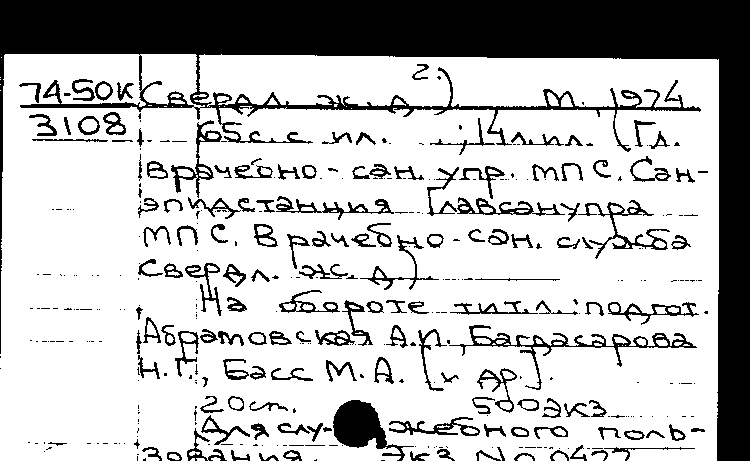 2.)
74-50К Свердл. ж. д.) М., 1974
3108 65 с. с ил. ; 14 л. ил. (Гл.
врачебно-сан. упр. МПС. Сан-
эпидстанция Главсанупра
МПС. Врачебно-сан. служба
Свердл. ж. д.)
На обороте тит. л.: подгот.
Абрамовская А.И., Багдасарова
Н.Г., Басс М.А. [и др.].
20 см. 500 экз
Для служебного поль-
зования. Экз. No 0477